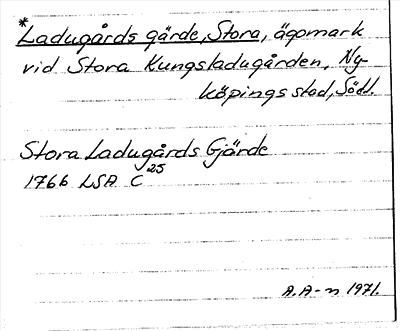 *Ladugårds gärde, Stora, ägomark
vid Stora Kungsladugården, Ny-
köpings stad, Södl.
Stora Ladugårds Gjärde
1766 LSA C 25
A.A-n 1971.